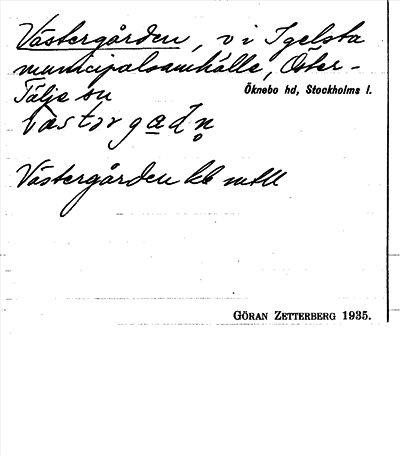 Västergården, v i Igelsta
municipalsamhälle, Öster-
Tälje sn
Öknebo hd, Stockholms l.
västərgadn̥
Västergården kb mtll
GÖRAN ZETTERBERG 1935.